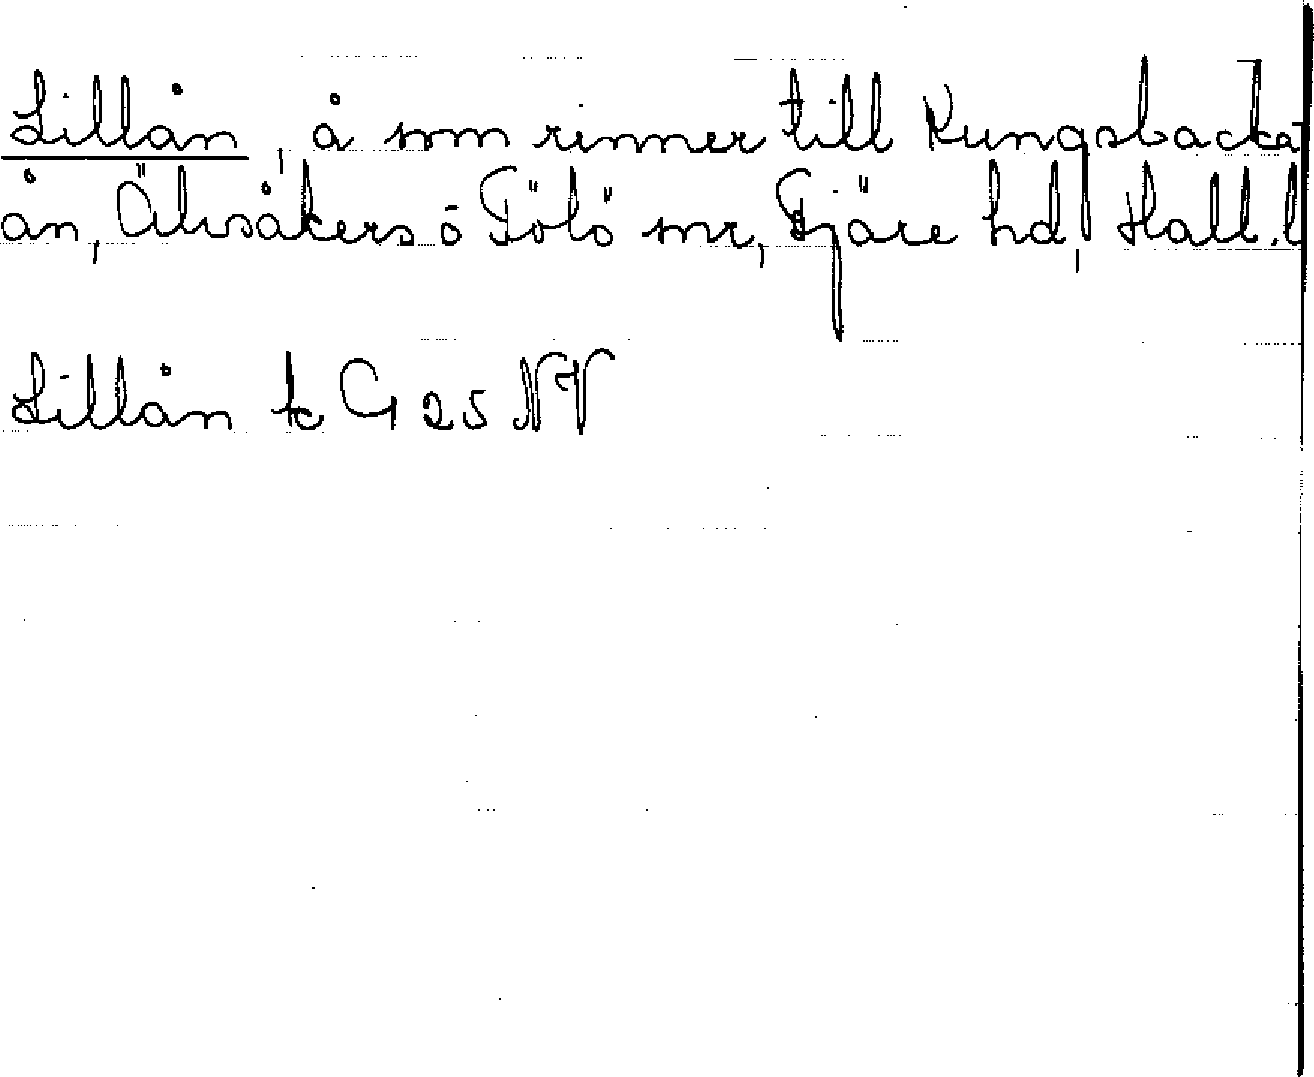 Lillån, å som rinner till Kungsbacka-
ån, Älvsåkers o Tölö snr, Fjäre hd, Hall. l
Lillån tc G 25 NV